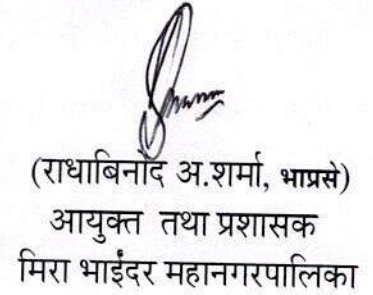 (राधाबिनोद अ.शर्मा, भाप्रसे)
आयुक्त तथा प्रशासक
मिरा भाईंदर महानगरपालिका